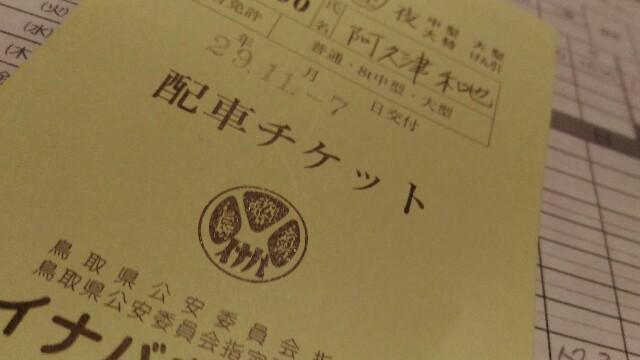 夜 中型 大型
大特 けん引
氏名 阿久津 和也
免許 普通・8t中型・大型
29.11.-7 年 月 日交付
配車チケット
イナバ
鳥取県公安委員会
鳥取県公安委員会指定
イナバ
(火)
(水)
(木)